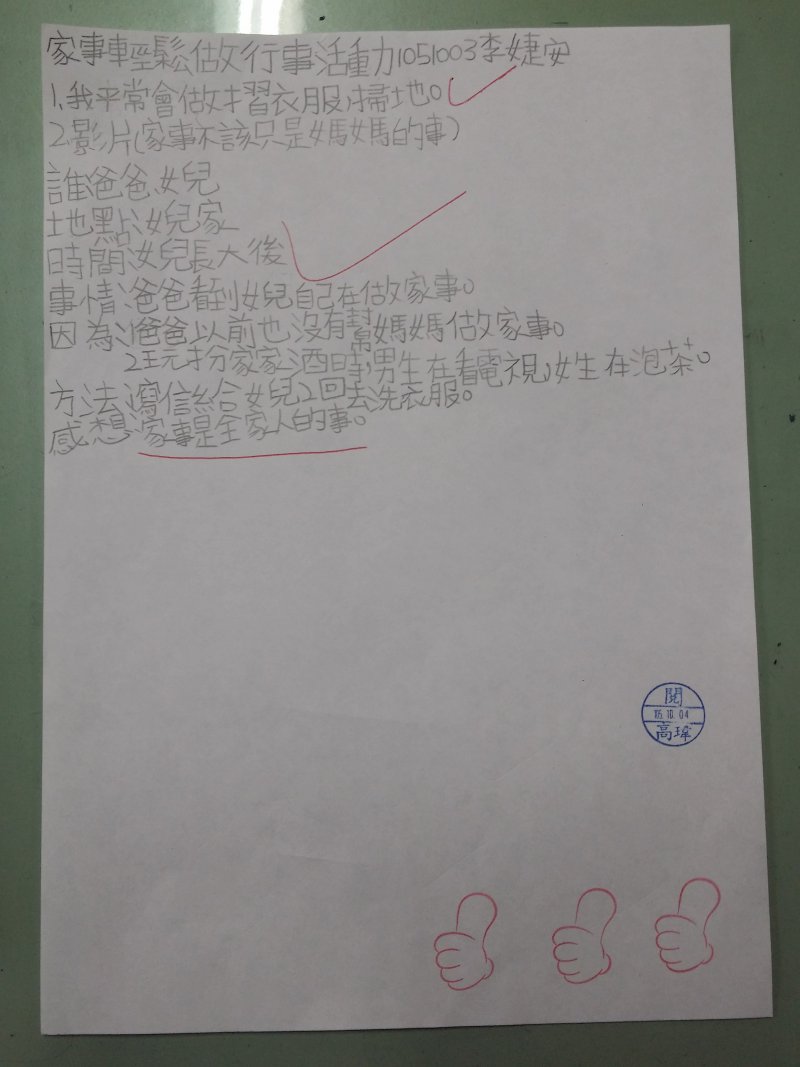 家事輕鬆做行事活動力1051003李婕安
1.我平常會做才習衣服,掃地。
2.影片(家事不該只是媽媽的事)
誰:爸爸、女兒
地點:女兒家
時間:女兒長大後
事情:爸爸看到女兒自己在做家事。
因為:1爸爸以前也沒有幫媽媽做家事。
2玩扮家家酒時,男生在看電視,女生在泡茶。
方法:1寫信給女兒2回去洗衣服。
感想:家事是全家人的事。
閱
105.10.04
高瑋